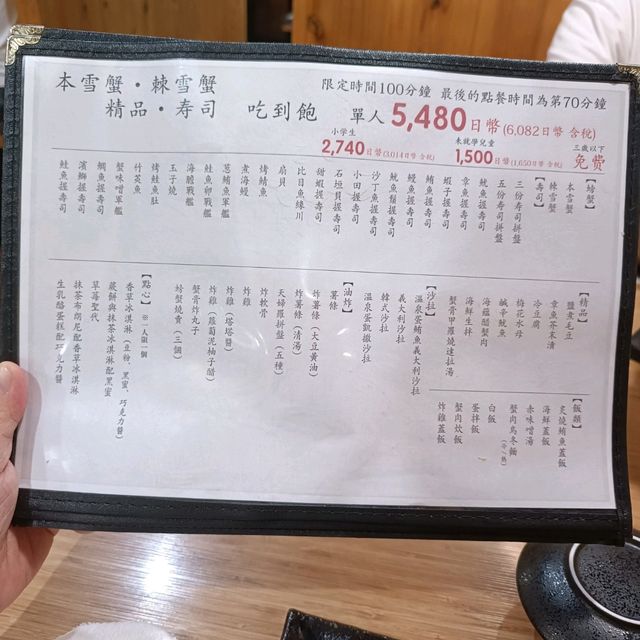 本雪蟹・棘雪蟹
精品・寿司 吃到飽
限定時間100分鐘 最後的點餐時間為第70分鐘
單人 5,480日幣(6,082日幣 含稅)
小学生
2,740日幣(3,014日幣 含稅)
未就學兒童
1,500日幣(1,650日幣 含稅)
三歲以下
免費
【螃蟹】
本雪蟹
棘雪蟹
【寿司】
三份寿司拼盤
五份寿司拼盤
魷魚握寿司
章魚握寿司
蝦子握寿司
鮪魚握寿司
鰻魚握寿司
魷魚鬚握寿司
沙丁魚握寿司
小田握寿司
石垣貝握寿司
甜蝦握寿司
比目魚緣川
扇貝
炙燒鮪魚
煮海鰻
蔥鮪魚軍艦
鮭魚卵戰艦
海膽戰艦
玉子燒
烤鮭魚肚
竹莢魚
蟹味噌軍艦
鯛魚握寿司
濱鰤握寿司
鮭魚握寿司
【精品】
鹽煮毛豆
章魚芥末漬
冷豆腐
梅花水母
鹹辛魷魚
海蘊醋蟹肉
海鮮生拌
蟹膏甲羅燒達拉湯
【沙拉】
溫泉蛋鮪魚義大利沙拉
義大利沙拉
韓式沙拉
溫泉蛋凱撒沙拉
【油炸】
薯條
炸薯條（大豆黃油）
炸薯條（清湯）
天婦羅拼盤（五種）
炸軟骨
炸雞
炸雞（塔塔醬）
炸雞（蘿蔔泥柚子醋）
蟹膏炸丸子
螃蟹燒賣（三個）
【點心】※一人限一個
香草冰淇淋（豆粉、黑蜜、巧克力醬）
蕨餅與抹茶冰淇淋配黑蜜
草莓聖代
抹茶布朗尼配香草冰淇淋
生乳酪蛋糕配巧克力醬
【飯類】
炙燒鮪魚蓋飯
海鮮蓋飯
赤味噌湯
蟹肉烏冬麵（冷/熱）
白飯
蛋拌飯
蟹肉炊飯
炸雞蓋飯